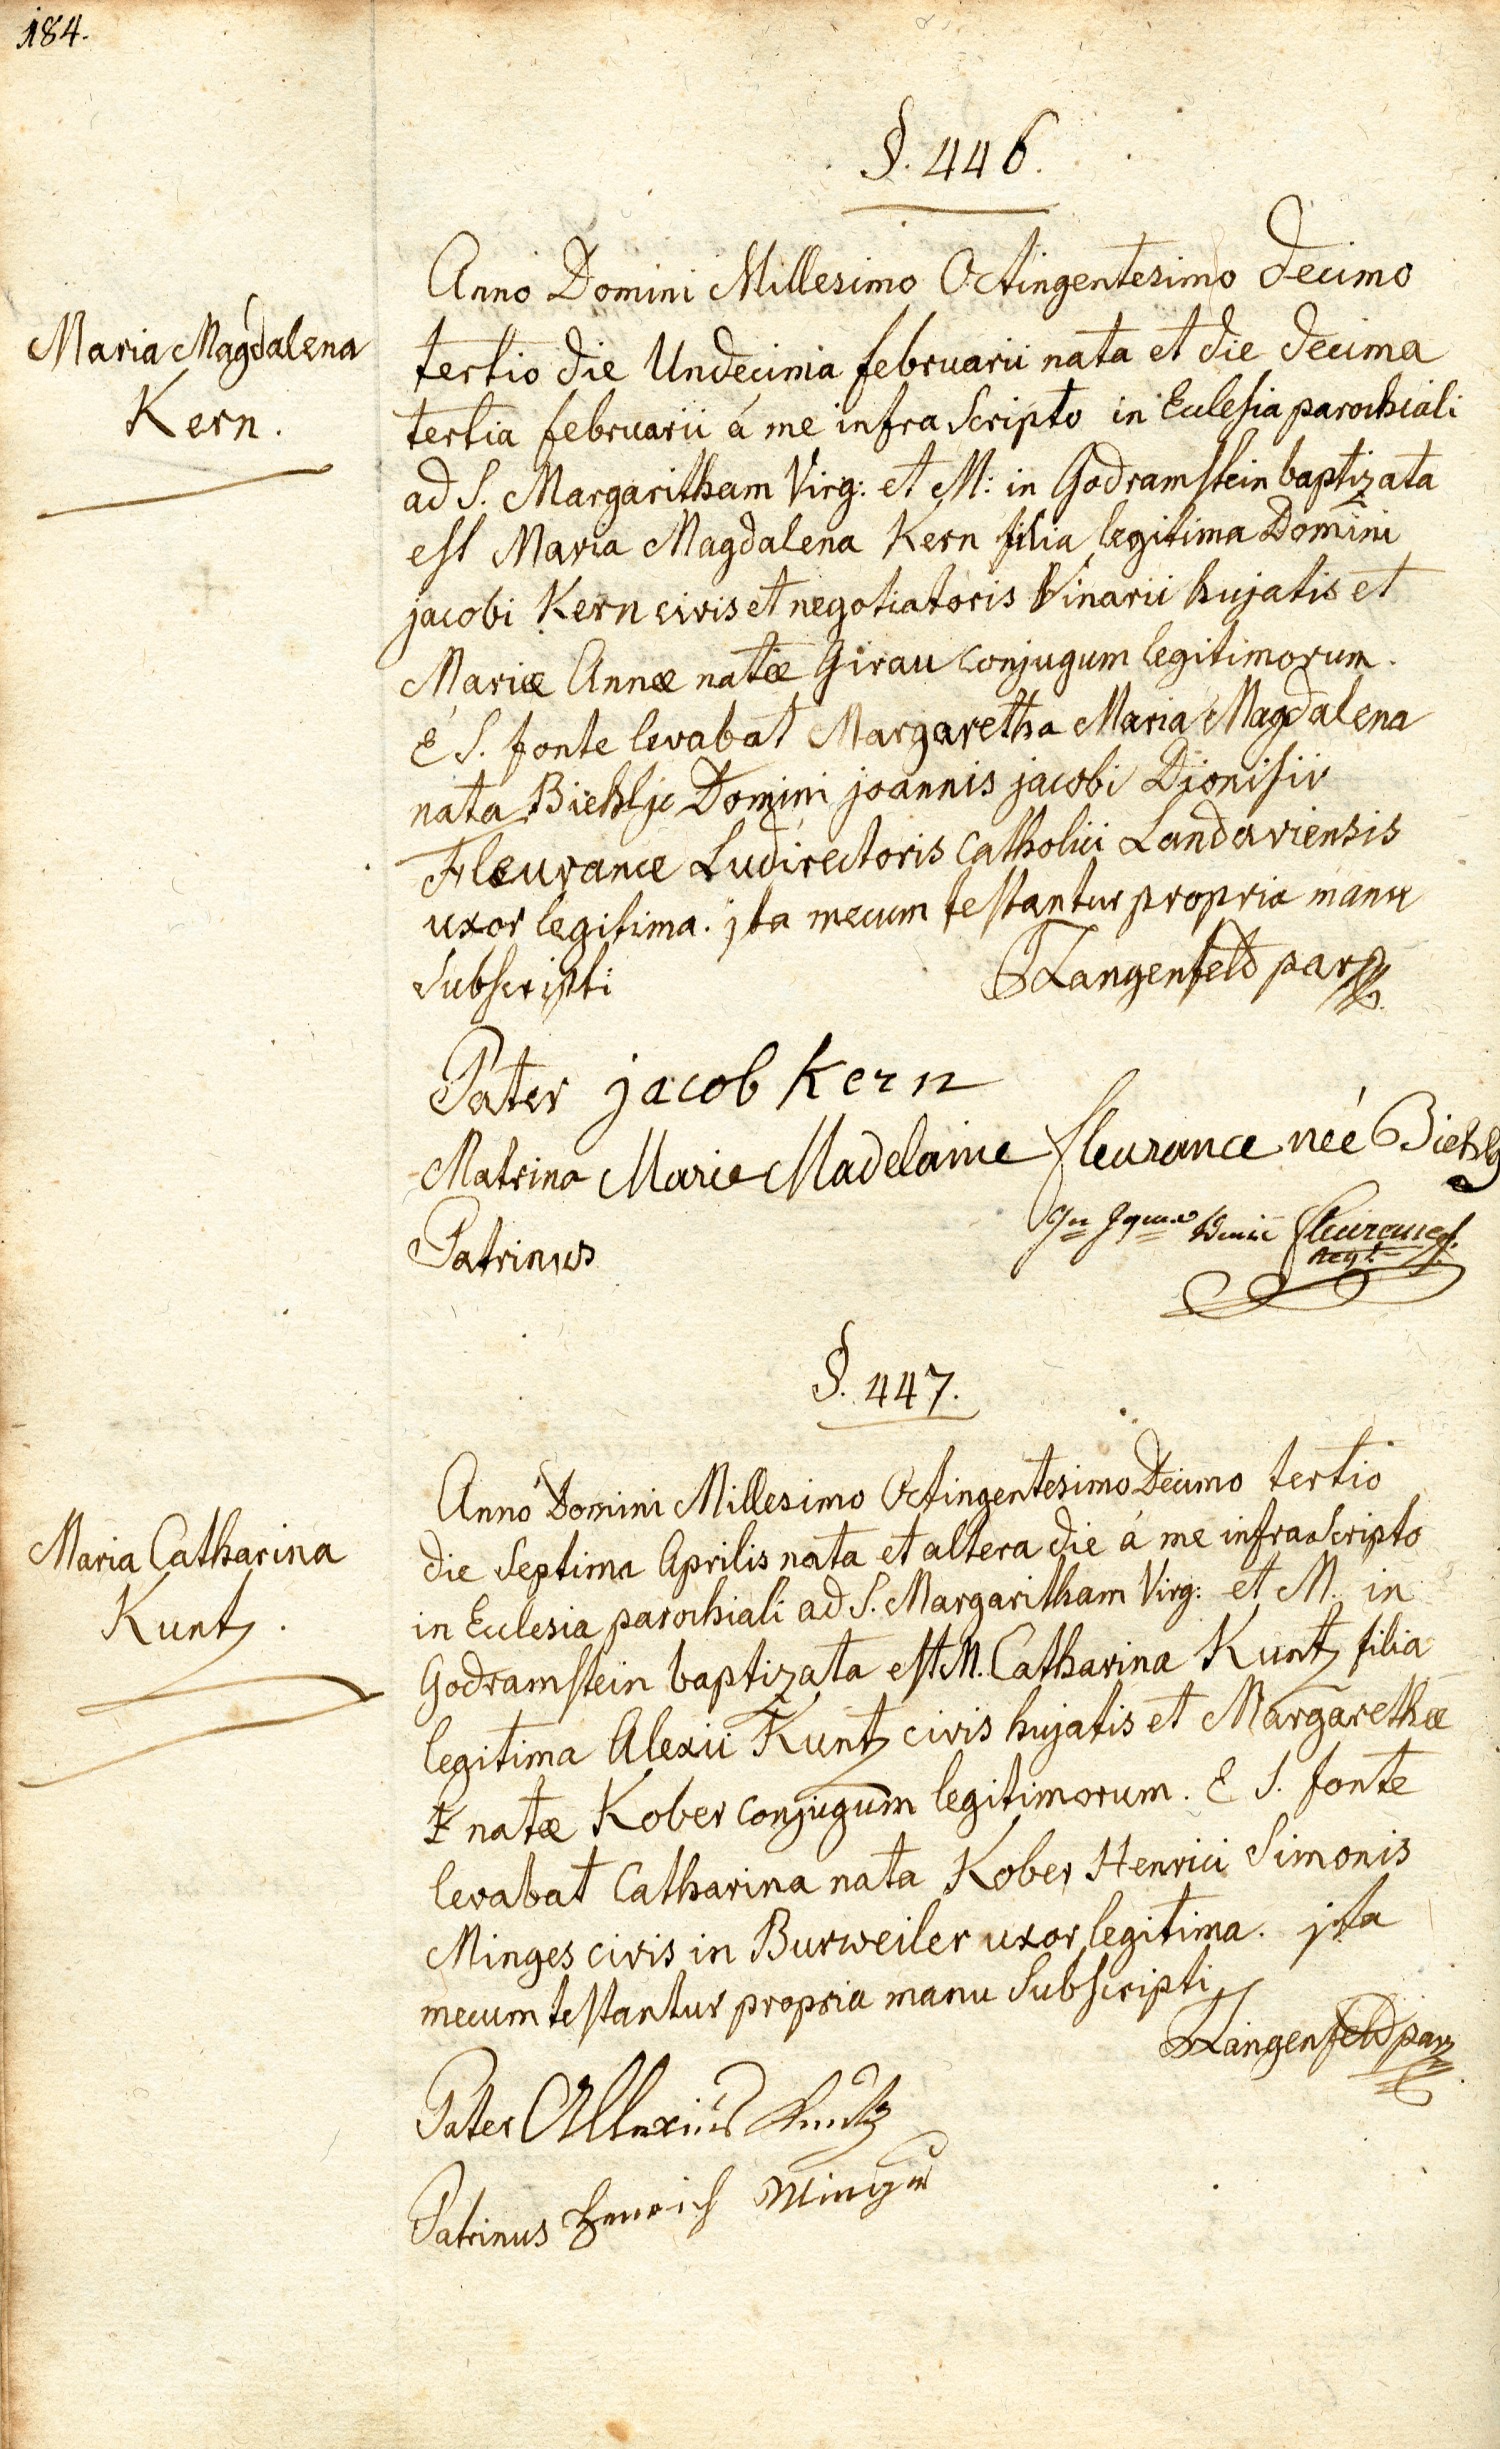 184.
§. 446.
Maria Magdalena
Kern.
Anno Domini Millesimo Octingentesimo decimo
tertio die Undecima februarii nata et die decima
tertia februarii á me infra Scripto in Ecclesia parochiali
ad S. Margaritham Virg: et M: in Godramstein baptizata
est Maria Magdalena Kern filia legitima Domini
jacobi Kern civis et negotiatoris Vinarii hujatis et
Mariæ Annæ natæ Girau conjugum legitimorum.
É S. fonte levabat Margaretha Maria Magdalena
nata Biehly Domini joannis jacobi Dionisii
Fleurance Ludirectoris Catholici Landaviensis
uxor legitima. jta mecum testantur propria manu
Subscripti
Langenfeld par
Pater jacob Kern
Matrina Marie Madelaine fleurance neé Biehly
Patrinus
fleurance
§. 447.
Maria Catharina
Kuntz.
Anno Domini Millesimo Octingentesimo Decimo tertio
die Septima Aprilis nata et altera die á me infra Scripto
in Ecclesia parochiali ad S. Margaritham Virg: et M. in
Godramstein baptizata est M. Catharina Kuntz filia
legitima Alexii Kuntz civis hujatis et Margarethæ
natæ Kober conjugum legitimorum. E S. fonte
levabat Catharina nata Kober Henrici Simonis
Minges civis in Burweiler uxor legitima. jta
mecum testantur propria manu Subscripti
Langenfeld par
Pater Allexius Kuntz
Patrinus Henrich Minges